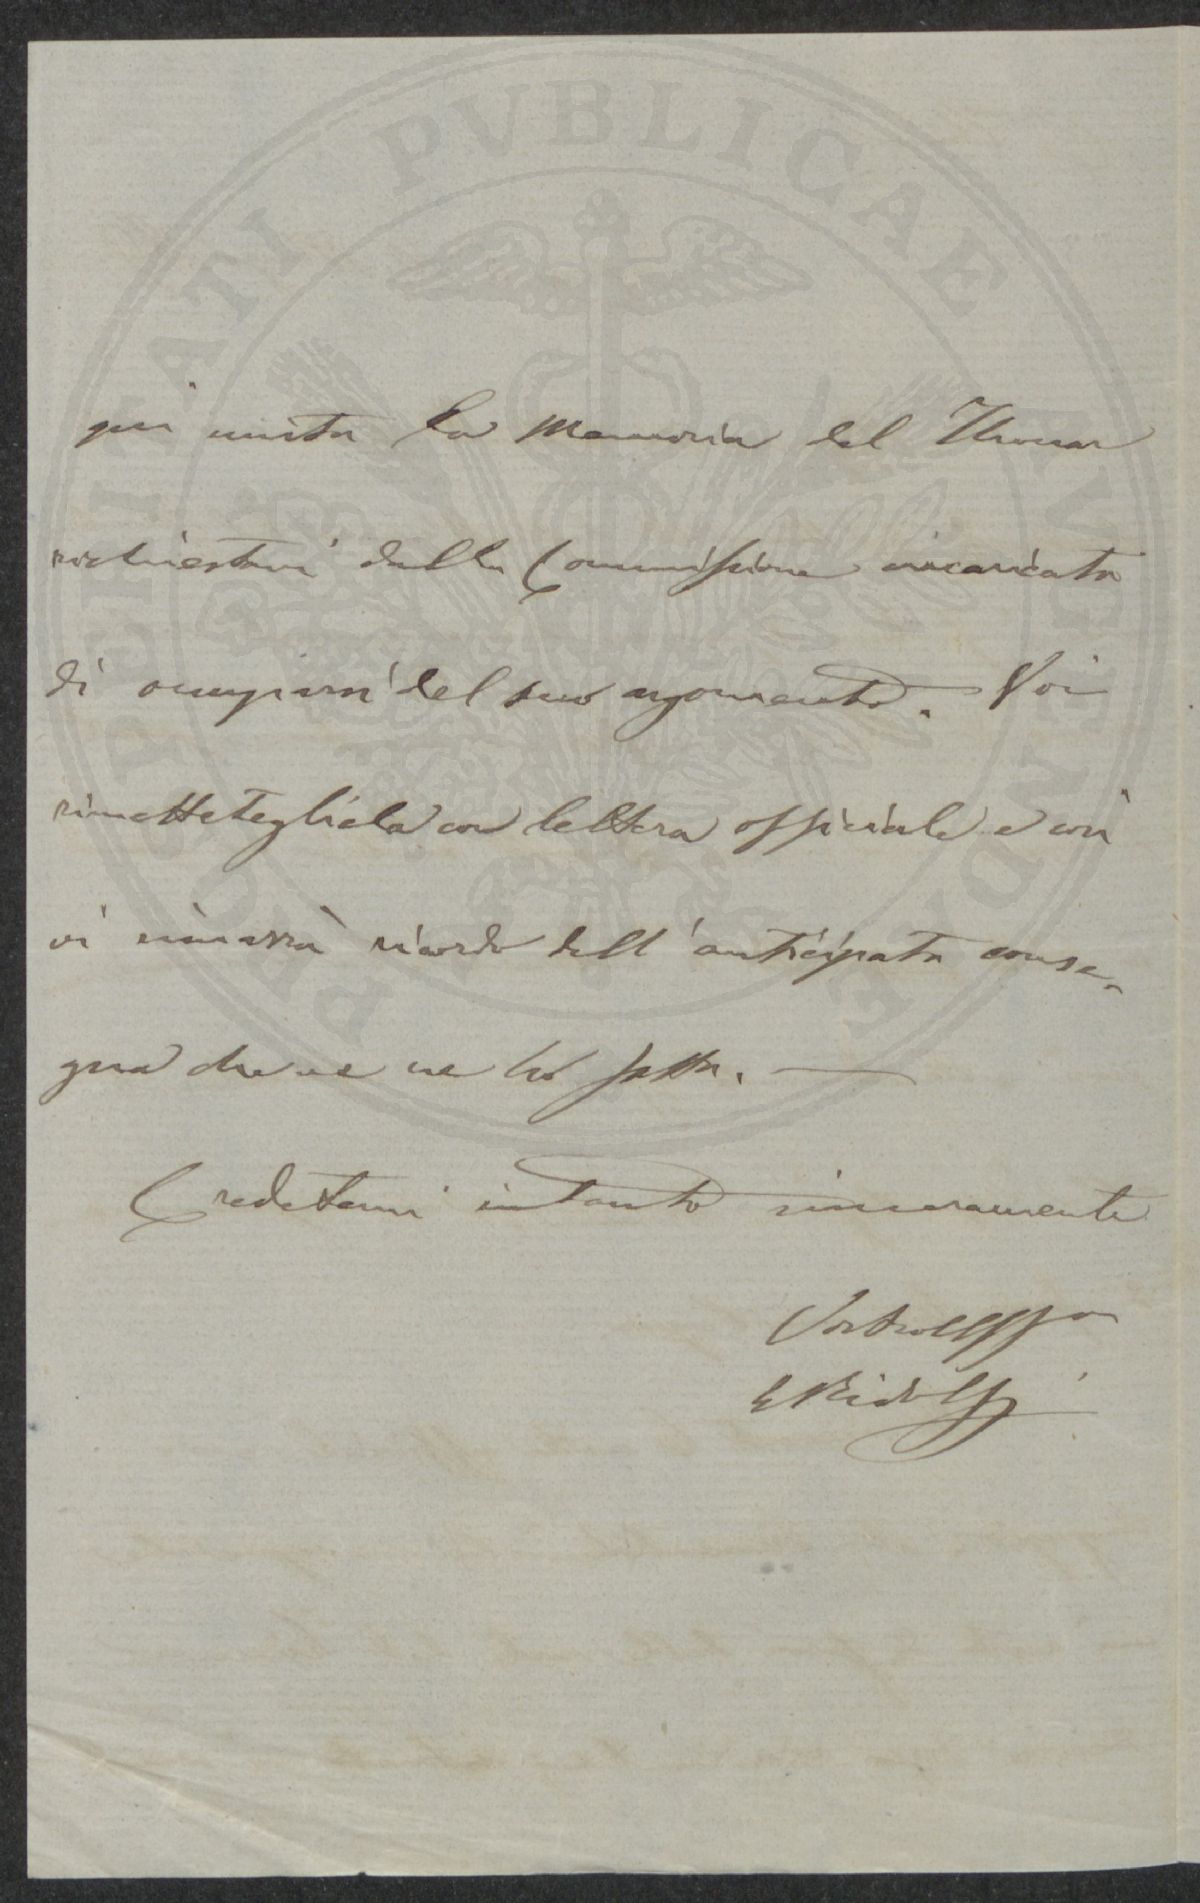 PROSPERITATI PVBLICAE AVGENDAE
qui unita la Memoria del Thouar
richiestami dalla Commissione incaricata
di occuparsi del suo argomento. Voi
rimettetegliela con lettera officiale e così
vi rimarrà ricordo dell'anticipata conse-
gna che ve ne ho fatta. —
Credetemi intanto sinceramente
Vostro
C Ridolfi